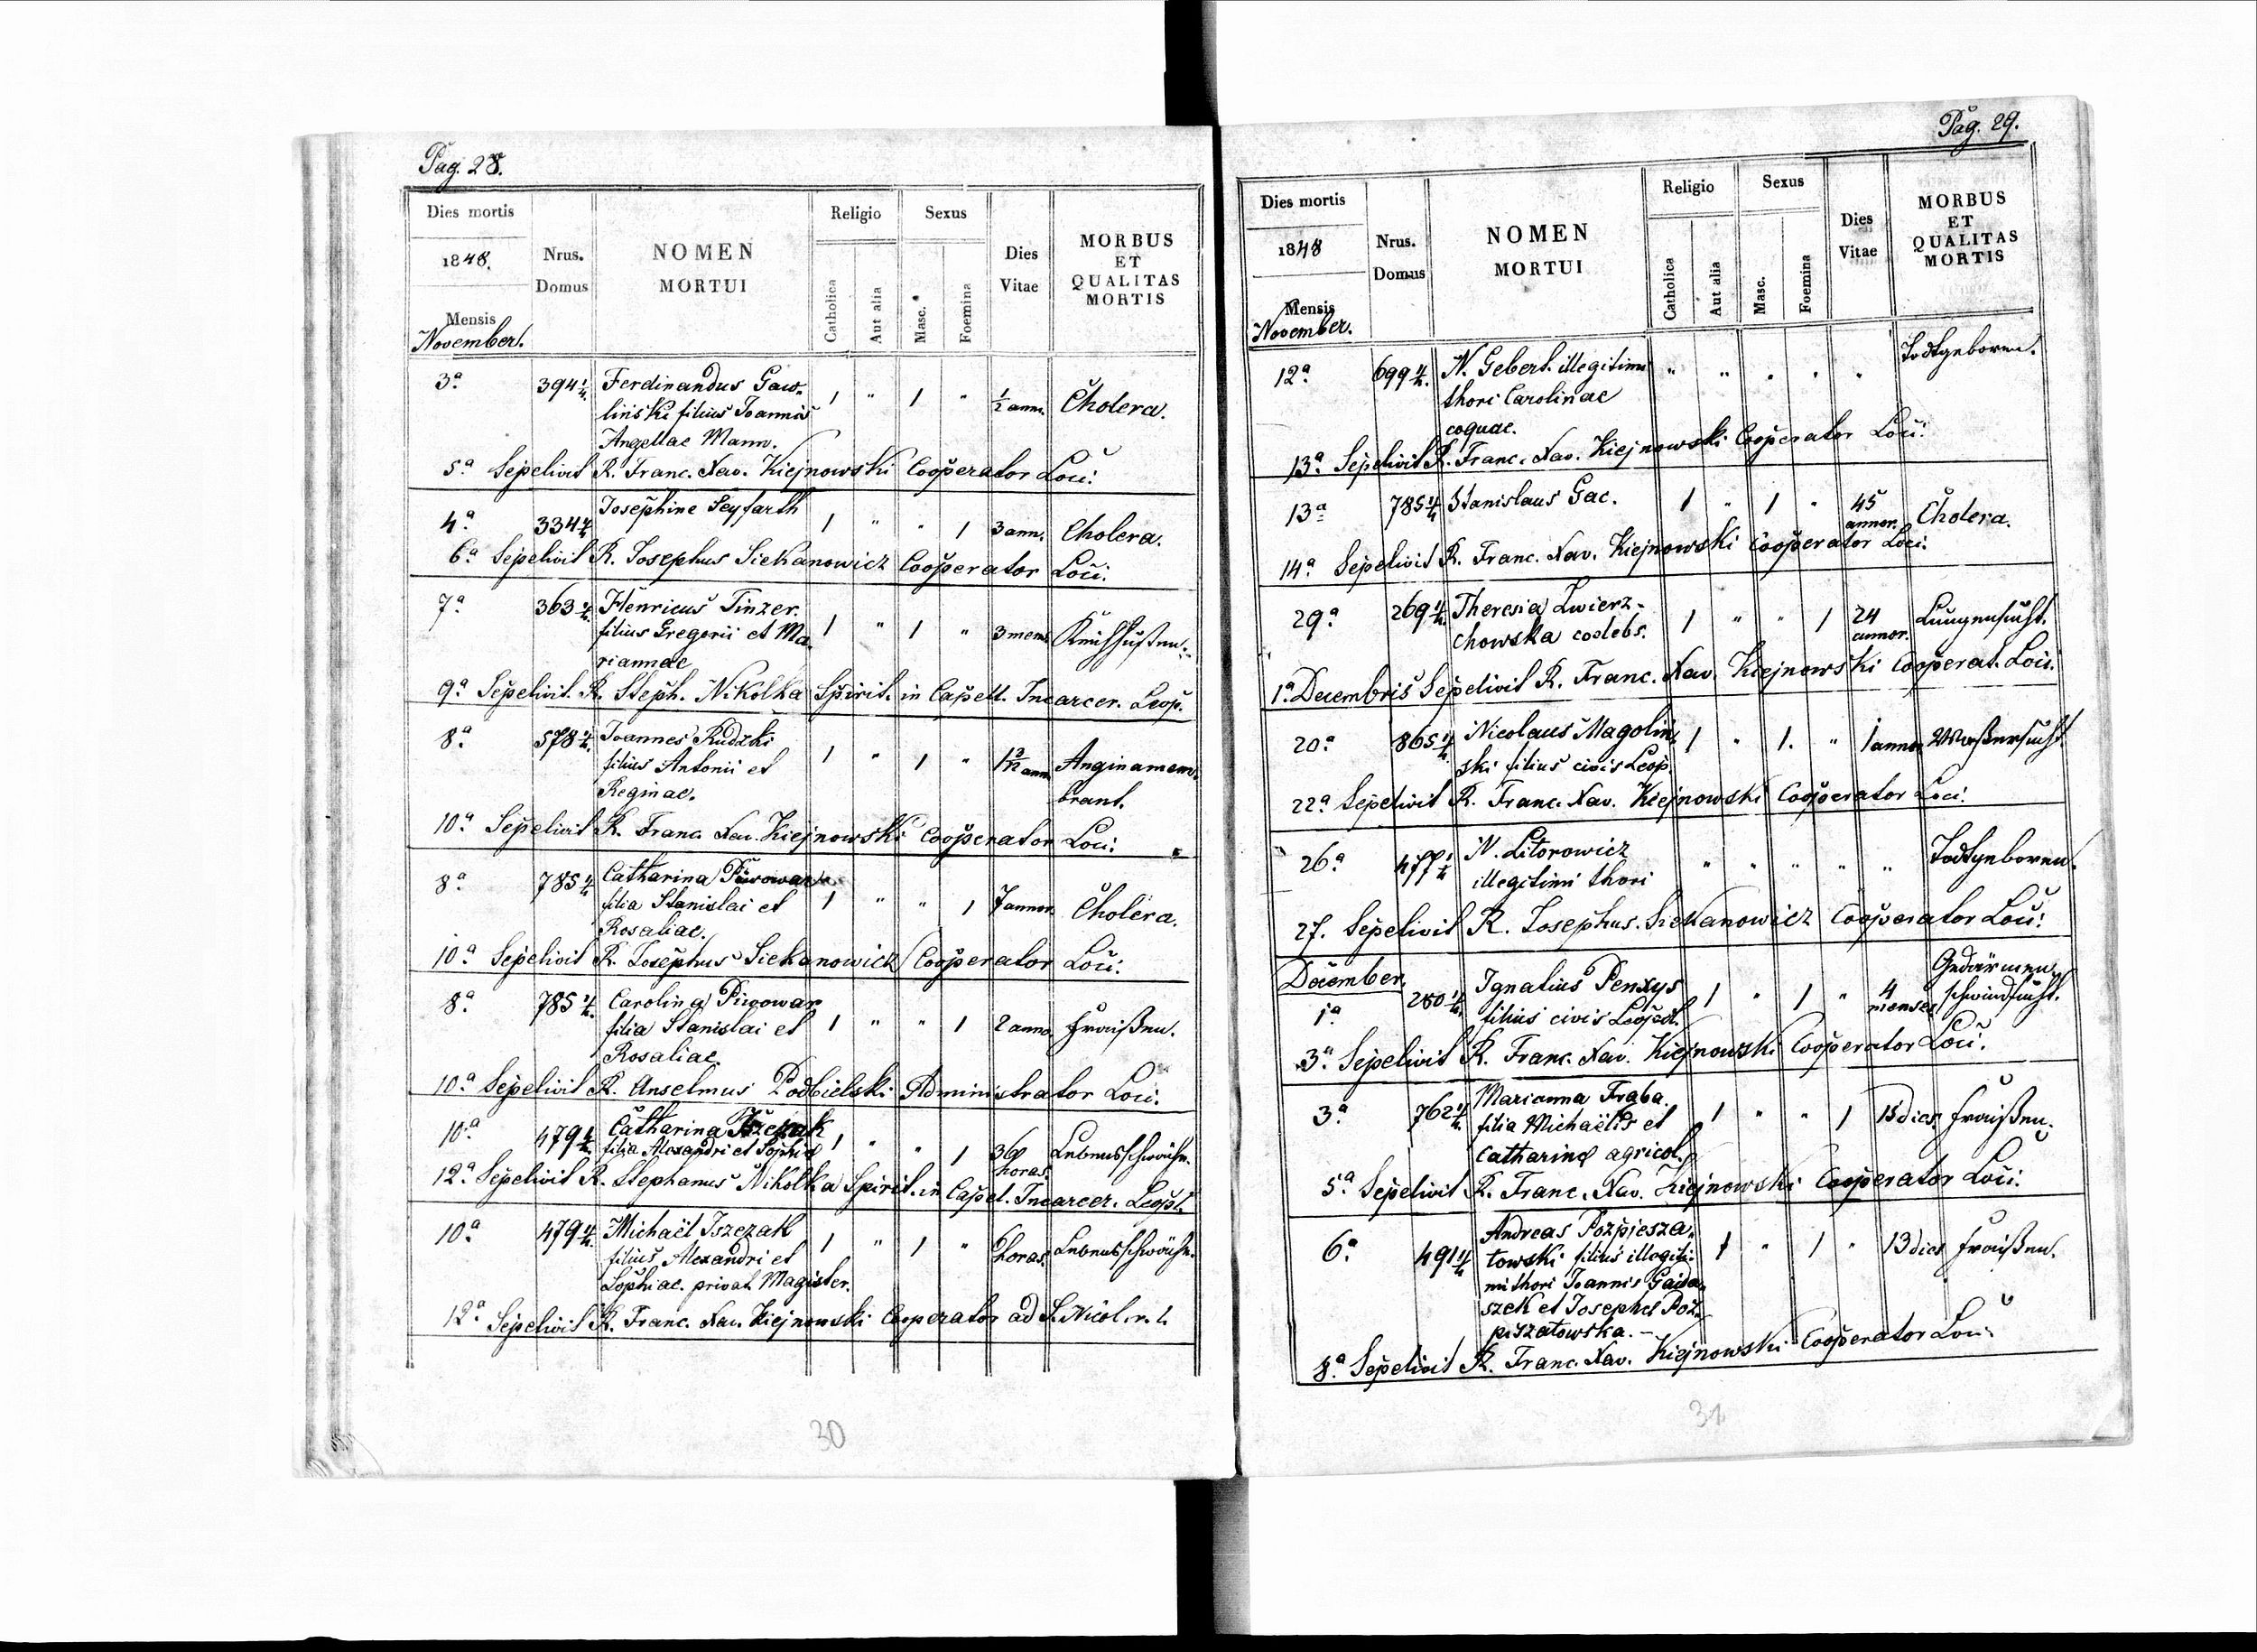 Pag. 28.
Dies mortis
1848.
Mensis
November.
Nrus.
Domus
NOMEN
MORTUI
Religio
Catholica
Aut alia
Sexus
Masc.
Foemina
Dies
Vitae
MORBUS
ET
QUALITAS
MORTIS
3ª 394 4/4. Ferdinandus Gaw-
liński filius Joannis 1 " 1 " 1/2 ann. Cholera.
Angellae Mann.
5ª Sepelivit R. Franc. Xav. Kiejnowski Cooperator Loci.
4ª 334 4/4 Josephine Seyfarth 1 " " 1 3 ann. Cholera.
6ª Sepelivit R. Josephus Siekanowicz Cooperator Loci.
7ª 363 4/4. Henricus Tinzer.
filius Gregorii et Ma- 1 " 1 " 3 mens.
riannae
9ª Sepelivit R. Steph. Nikolka Spirit. in Capell. Incarcer. Leop.
8ª 578 4/4. Joannes Rudzki
filius Antonii et 1 " 1 " ann. Angina mem-
Reginae. brant.
10ª Sepelivit R. Franc. Xav. Kiejnowski Cooperator Loci.
8ª 785 4/4 Catharina Piwowar
filia Stanislai et 1 " " 1 7 annor. Cholera.
Rosaliae.
10ª Sepelivit R. Josephus Siekanowicz Cooperator Loci.
8ª 785 4/4. Carolina Piwowar
filia Stanislai et 1 " " 1 2 anno. Fraißen.
Rosaliae
10ª Sepelivit R. Anselmus Podbielski Administrator Loci.
10ª 479 4/4. Catharina Iszczak
filia Alexandri et Sophia 1 " " 1 36 horas. Lebensschwäche.
12ª Sepelivit R. Stephanus Nikolka Spirit. in Capel. Incarcer. Leopl.
10ª 479 4/4. Michaël Iszczak
filius Alexandri et 1 " 1 " 6 horas. Lebensschwäche.
Sophiae. privat Magister.
12ª Sepelivit R. Franc. Xav. Kiejnowski Cooperator ad S. Nicol. r. l.
30
Pag. 29.
Dies mortis
1848
Mensis
November.
Nrus.
Domus
NOMEN
MORTUI
Religio
Catholica
Aut alia
Sexus
Masc.
Foemina
Dies
Vitae
MORBUS
ET
QUALITAS
MORTIS
12ª 699 4/4. N. Gebert. illegitimi " " " " " Todtgeboren.
thori Carolinae
coquae.
13ª Sepelivit R. Franc. Xav. Kiejnowski Cooperator Loci.
13ª 785 4/4 Stanislaus Gac. 1 " 1 " 45 annor. Cholera.
14ª Sepelivit R. Franc. Xav. Kiejnowski Cooperator Loci.
29ª 269 4/4. Theresia Zwierz-
chowska coelebs. 1 " " 1 24 annor. Lungensucht.
1ª Decembris Sepelivit R. Franc. Xav. Kiejnowski Cooperat. Loci.
20ª 865 4/4 Nicolaus Magoliń- 1 " 1. " 1 anno Waßersucht
ski filius civis Leop.
22ª Sepelivit R. Franc. Xav. Kiejnowski Cooperator Loci.
26ª 477 4/4 N. Litorowicz
illegitimi thori " " " " " Todtgeboren.
27. Sepelivit R. Josephus Siekanowicz Cooperator Loci.
December.
1ª 280 4/4. Ignatius Penxys 1 " 1 " 4 menses Gedärmen-
filius civis Leopol. schwindsucht.
3ª Sepelivit R. Franc. Xav. Kiejnowski Cooperator Loci.
3ª 762 4/4 Marianna Fraba.
filia Michaëlis et 1 " " 1 15 dies. Fraißen.
Catharina agricol.
5ª Sepelivit R. Franc. Xav. Kiejnowski Cooperator Loci.
6ª 491 4/4 Andreas Pożpiesza-
towski filius illegiti- 1 " 1 " 13 dies Fraißen.
mi thori Joannis Gaida-
szek et Josepha Poż-
piszatowska. -
8ª Sepelivit R. Franc. Xav. Kiejnowski Cooperator Loci.
31